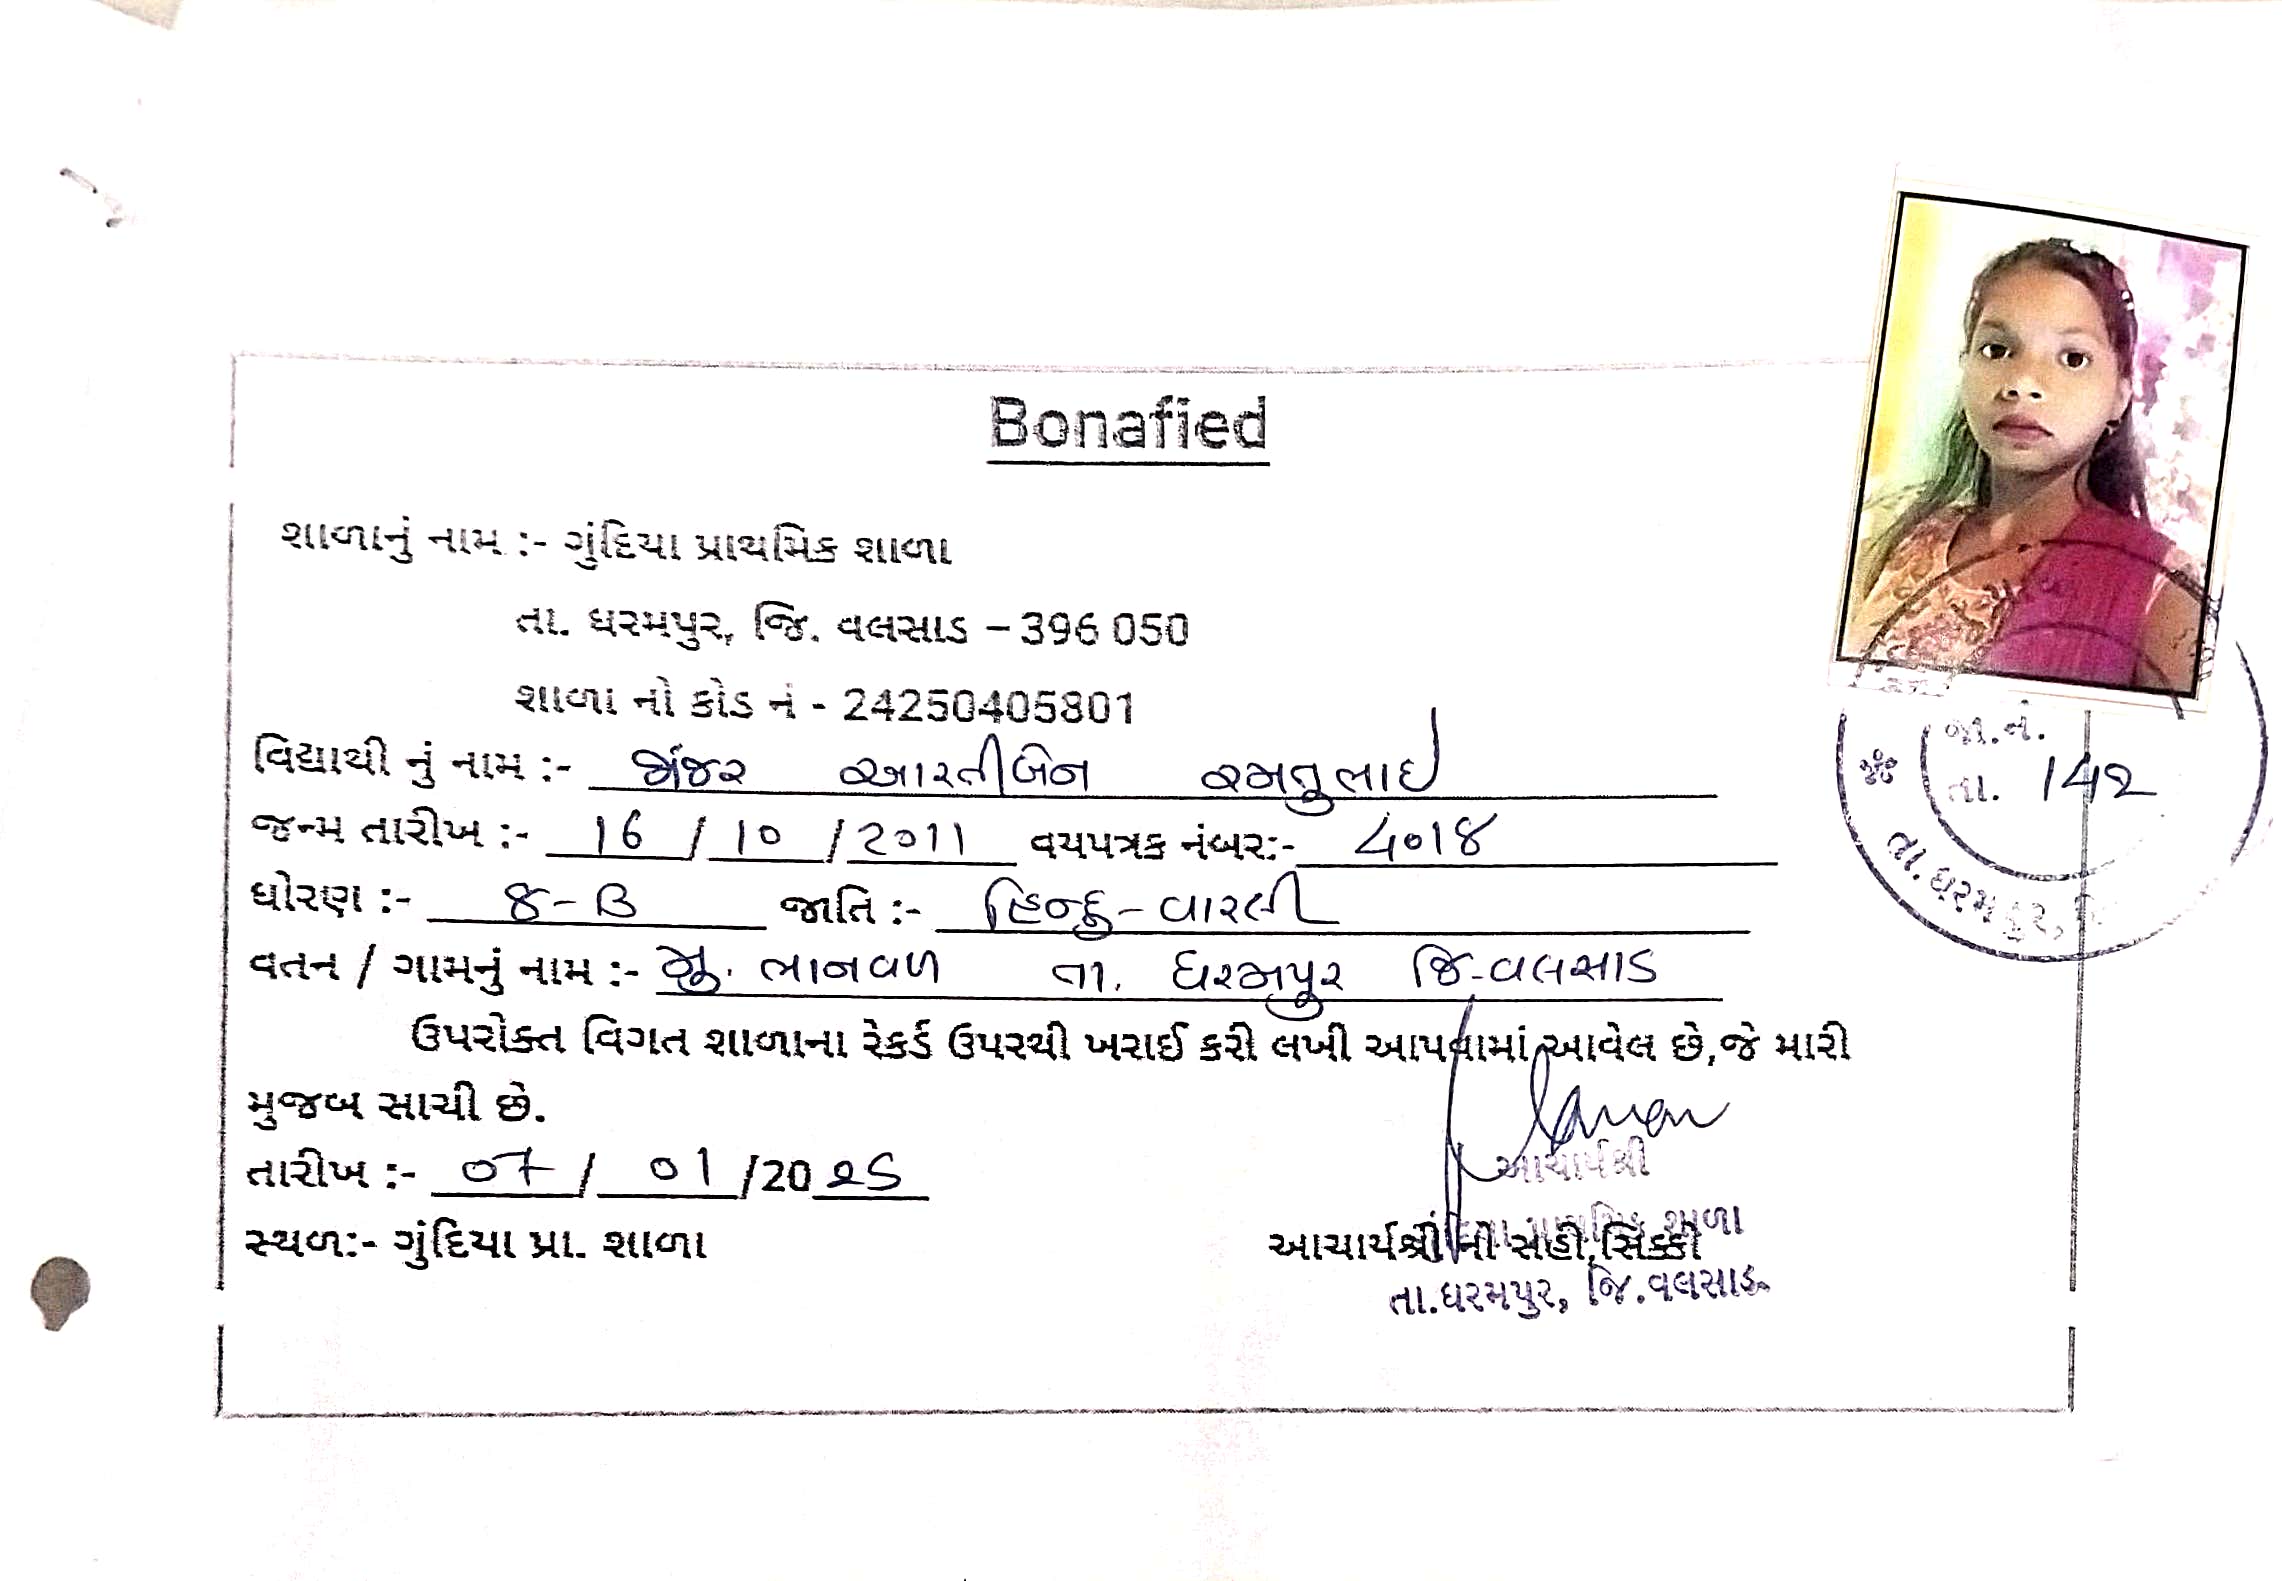 Bonafied
શાળાનું નામ :- ગુંદિયા પ્રાથમિક શાળા
તા. ધરમપુર, જિ. વલસાડ – 396 050
શાળા નો કોડ નં - 24250405801
વિદ્યાથી નું નામ :- આરતીબેન રમતુભાઇ
જન્મ તારીખ :- 16 / 10 / 2011 વયપત્રક નંબર:- 4018
ધોરણ :- 8 - B જાતિ :- હિન્દુ - વારલી
વતન / ગામનું નામ :- મુ. ભાનવળ તા. ધરમપુર જિ-વલસાડ
ઉપરોક્ત વિગત શાળાના રેકર્ડ ઉપરથી ખરાઈ કરી લખી આપવામાં આવેલ છે,જે મારી
મુજબ સાચી છે.
તારીખ :- 07 / 01 /2025
સ્થળ:- ગુંદિયા પ્રા. શાળા
આચાર્યશ્રી
આચાર્યશ્રી ની સહી,સિક્કો
તા.ધરમપુર, જિ.વલસાડ.
જા.નં.
તા. 142
તા. ધરમપુર,